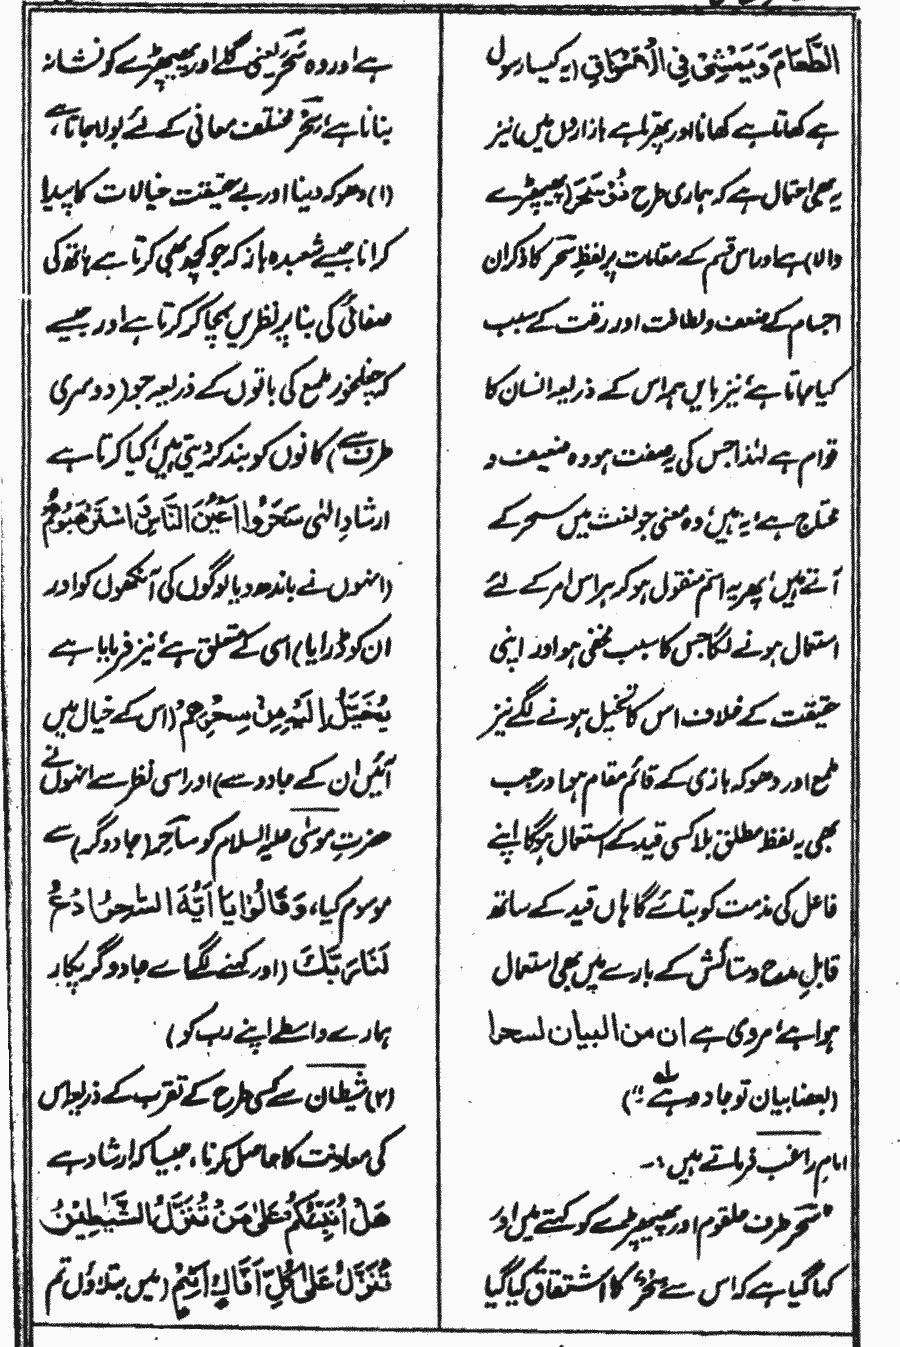 الطَّعَامَ وَيَمْشِيْ فِي الْاَسْوَاقِ (یہ کیسا رسول
ہے کھاتا ہے کھانا اور پھرتا ہے بازاروں میں) نیز
یہ بھی احتمال ہے کہ ہماری طرح ذُوْ سَحَرٍ (پھیپھڑے
والا) ہے اور اس قسم کے مقامات پر لفظِ سحر کا ذکر ان
اجسام کے ضعف و لطافت اور رقت کے سبب
کیا جاتا ہے، نیز بایں ہمہ اس کے ذریعہ انسان کا
قوام ہے لہٰذا جس کی یہ صفت ہو وہ ضعیف و
محتاج ہے، یہ ہیں، وہ معنی جو لغت میں سحر کے
آتے ہیں، پھر یہ اسم منقول ہو کر ہر اس امر کے لئے
استعمال ہونے لگا جس کا سبب مخفی ہو اور اپنی
حقیقت کے خلاف اس کا تخیل ہونے لگے نیز
ملمع اور دھوکہ بازی کے قائم مقام ہو اور جب
بھی یہ لفظ مطلق بلا کسی قید کے استعمال ہوگا اپنے
فاعل کی مذمت کو بتائے گا ہاں قید کے ساتھ
قابلِ مدح و ستائش کے بارے میں بھی استعمال
ہوا ہے، مروی ہے ان من البیان لسحرا
(بعضا بیان تو جادو ہے)
امام راغب فرماتے ہیں :-
"سحر طرف حلقوم اور پھیپھڑے کو کہتے ہیں اور
کہا گیا ہے کہ اس سے سُحْرٌ کا اشتقاق کیا گیا
ہے اور وہ سَحْر یعنی گلے اور پھیپھڑے کو نشانہ
بنانا ہے، سِحْر مختلف معانی کے لئے بولا جاتا ہے،
(۱) دھوکہ دینا اور بے حقیقت خیالات کا پیدا
کرانا جیسے شعبدہ باز کہ جو کچھ بھی کرتا ہے ہاتھ کی
صفائی کی بنا پر نظریں بچا کر کرتا ہے اور جیسے
کہ چغلخور ملمع کی باتوں کے ذریعہ جو (دوسری
طرف سے) کانوں کو بند کر دیتی ہیں، کیا کرتا ہے
ارشادِ الٰہی سَحَرُوا اَعْيُنَ النَّاسِ وَ اسْتَرْهَبُوهُمْ
(انہوں نے باندھ دیا لوگوں کی آنکھوں کو اور
ان کو ڈرایا) اسی کے متعلق ہے، نیز فرمایا ہے
يُخَيَّلُ اِلَيْهِ مِنْ سِحْرِهِمْ (اس کے خیال میں
آئیں ان کے جادو سے) اور اسی نظر سے انہوں نے
حضرتِ موسٰی علیہ السلام کو ساحر (جادوگر) سے
موسوم کیا، وَ قَالُوْا يَا اَيُّهَ السَّاحِرُ ادْعُ
لَنَا رَبَّكَ (اور کہنے لگے اے جادوگر پکار
ہمارے واسطے اپنے رب کو)
(۲) شیطان سے کسی طرح کے تقرب کے ذریعہ اس
کی معاونت کا حاصل کرنا، جیسا کہ ارشاد ہے
هَلْ اُنَبِّئُكُمْ عَلٰى مَنْ تَنَزَّلُ الشَّيٰطِيْنُ
تَنَزَّلُ عَلٰى كُلِّ اَفَّاكٍ اَثِيْمٍ (میں بتلاؤں تم